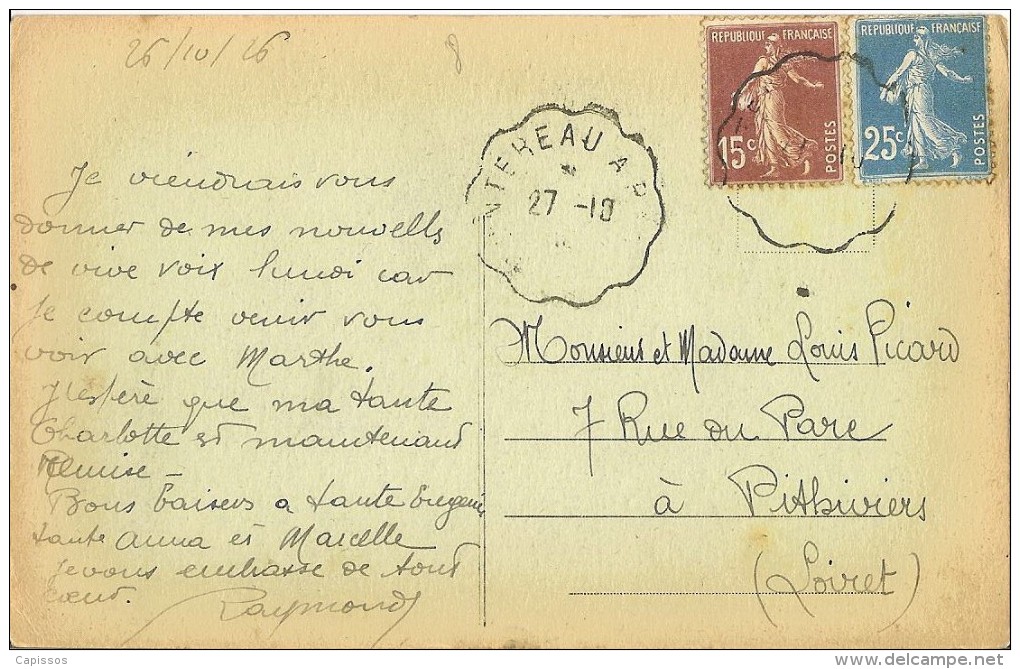 26/10/26
8
RÉPUBLIQUE FRANÇAISE
15c
POSTES
RÉPUBLIQUE FRANÇAISE
25c
POSTES
NTEREAU A P
27 -10
Je viendrais vous
donner de mes nouvells
de vive voix lundi car
Je compte venir vous
voir avec Marthe.
J'espère que ma tante
Charlotte est maintenant
Remise –
Bons baisers a tante Eugenie
tante Anna et Marcelle
Je vous embrasse de tout
cœur.
Raymond
Monsieur et Madame Louis Picard
7 Rue du Parc
à Pithiviers
(Loiret)
Capissos
delcampe.net